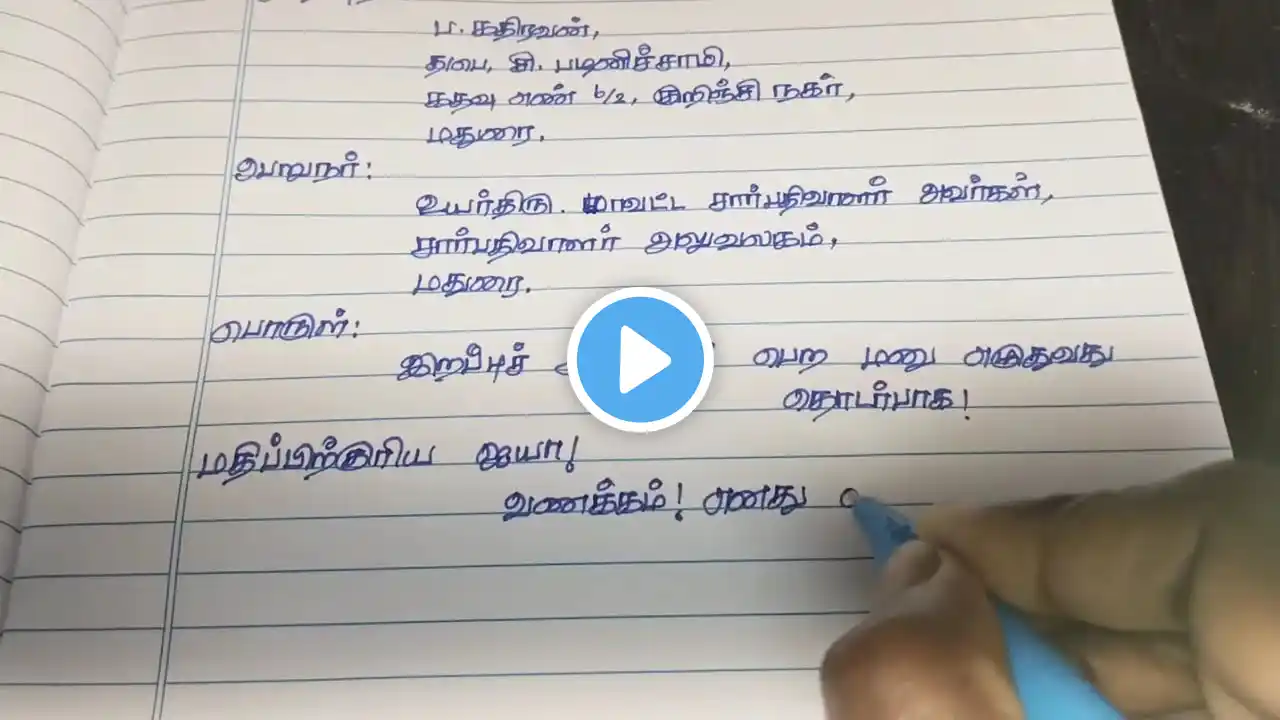 ப. கதிரவன்,
த/பெ, சி. பழனிச்சாமி,
கதவு எண் 6/2, குறிஞ்சி நகர்,
மதுரை.
பெறுநர்:
உயர்திரு. மாவட்ட சார்பதிவாளர் அவர்கள்,
சார்பதிவாளர் அலுவலகம்,
மதுரை.
பொருள்:
இறப்புச் பெற மனு எழுதுவது
தொடர்பாக!
மதிப்பிற்குரிய ஐயா!
வணக்கம்! எனது